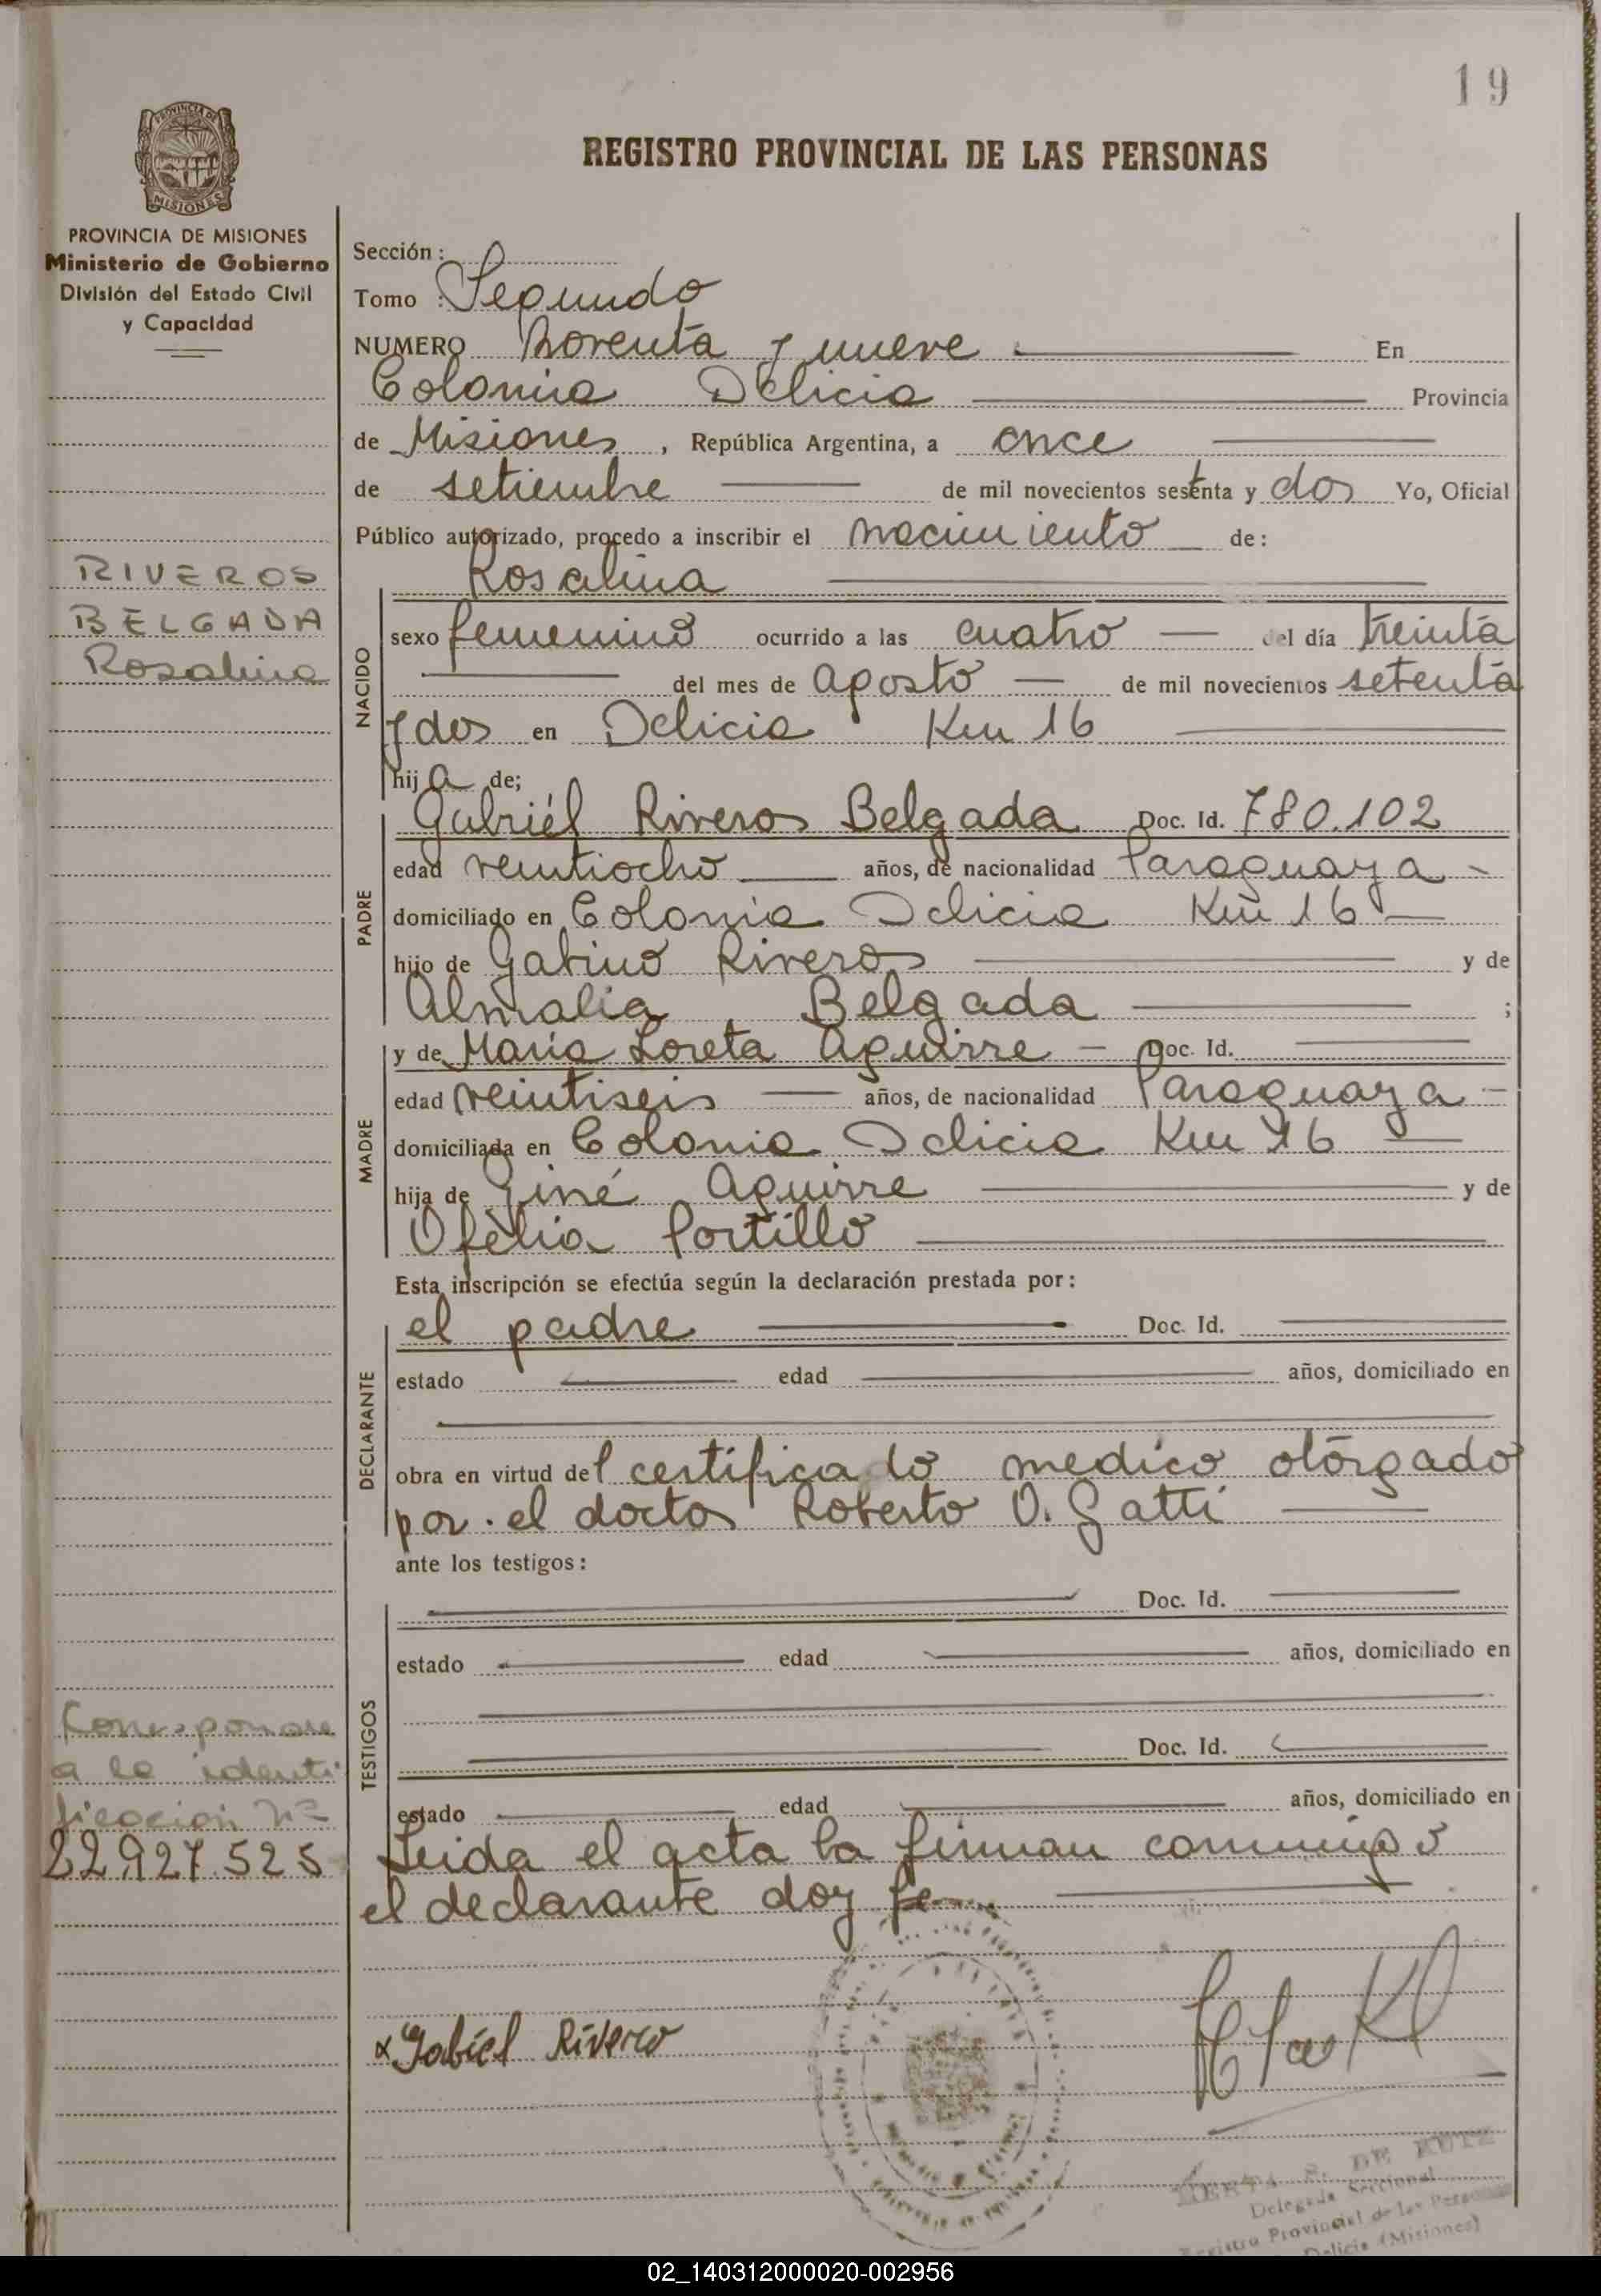 19
PROVINCIA DE
MISIONES
REGISTRO PROVINCIAL DE LAS PERSONAS
PROVINCIA DE MISIONES
Ministerio de Gobierno
División del Estado Civil
y Capacidad
RIVEROS
BELGADA
Rosalina
Corresponde
a la identi
ficacion Nº
22.927.525
Sección:
Tomo : Segundo
NUMERO Noventa y nueve En
Colonia Delicia Provincia
de Misiones, República Argentina, a once
de setiembre de mil novecientos sesenta y dos Yo, Oficial
Público autorizado, procedo a inscribir el nacimiento de:
Rosalina
NACIDO
sexo femenino ocurrido a las cuatro del día treinta
del mes de Agosto de mil novecientos setenta
y dos en Delicia Km 16
hija de;
PADRE
Gabriél Riveros Belgada Doc. Id. 780.102
edad veintiocho años, de nacionalidad Paraguaya
domiciliado en Colonia Delicia Km 16
hijo de Gabino Riveros y de
Almalia Belgada ;
MADRE
y de Maria Loreta Aguirre Doc. Id.
edad veintiseis años, de nacionalidad Paraguaya
domiciliada en Colonia Delicia Km 16
hija de Giné Aguirre y de
Ofelia Portillo
Esta inscripción se efectúa según la declaración prestada por:
DECLARANTE
el padre Doc. Id.
estado edad años, domiciliado en
obra en virtud del certificado medico otorgado
por el doctor Roberto O. Gatti
ante los testigos:
TESTIGOS
Doc. Id.
estado edad años, domiciliado en
Doc. Id.
estado edad años, domiciliado en
Leida el acta la firman conmigo
el declarante doy fe
x Gabiel Rivero
DE KUTZ
Delegada Seccional
Registro Provincial de las Personas
Delicia (Misiones)
02_140312000020-002956